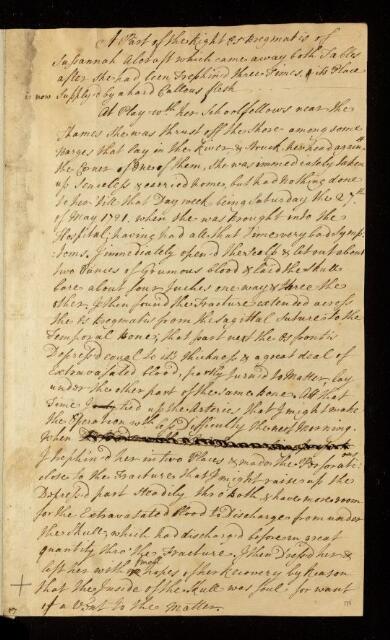 A Part of the Right Os Bregmatis of
Susannah Alcraft which came away both Tables
after she had been Trephin'd three Times, & its Place
now Supply'd by a hard Callous flesh
At Play with her Schoolfellows near the
Thames she was thrust off the Shore among some
Barges that lay in the River & Struck her head again
the Corner of One of them, She was immediately taken
up Senseless & carried home, but had Nothing done
to her till that Day week being Saturday the 27th
of May 1721. when she was brought into the
Hospital; having had all that Time very bad Symp
toms. I immediately open'd the Scalp & let out about
two Ounces of Grumous blood & laid the Skull
bare about four Inches one way & three the
other, I then found the Fracture extended across
the Os Bregmatis from the Sagittal Suture to the
Temporal Bone; that part next the Os frontis
Depress'd equal to its thickness & a great deal of
Extravasated blood, partly turn'd to Matter, lay
under the other part of the same Bone. At that
Time I tied up the Arteries that I might make
the Operation with less difficulty the next Morning.
When
I trephin'd her in two Places & made the Perforations
close to the Fracture that I might raise up the
Depress'd part Steadily thro' both & have more room
for the Extravasated blood to Discharge from under
the Skull; which had discharged before in great
quantity thro' the Fracture. I then Dress'd her &
left her with small hopes of her Recovery by Reason
that the Inside of the Skull was foul for want
of a Vent to the Matter.